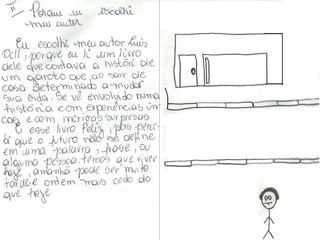 Porque eu escolhi
meu autor
Eu escolhi meu autor Luis
Dill, porque eu li um livro
dele que contava a histori de
um garoto que ao sair de
casa determinado a mudar
sua vida. Se vê envolvido numa
história com experiencias ún-
cas e com incriveis surpresas
E esse livro feliz, pois perce-
bi que o futuro não se define
em uma palavra, frase, ou
alguma pessoa. temos que viver
hoje, amanhã pode ser muito
tarde e ontem mais cedo do
que hoje.